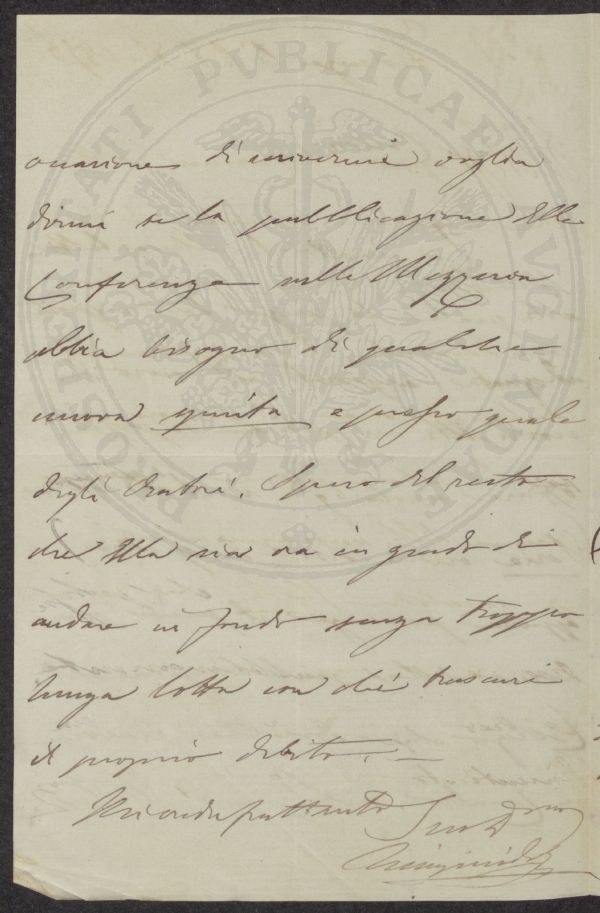 PROSPERITATI PVBLICAE AVGENDAE
occasione di scrivermi voglia
dirmi se la pubblicazione delle
Conferenze sulla
abbia bisogno di qualche
nuova spinta e presso quale
degli Oratori. Spero del resto
che Ella sia ora in grado di
andare in fondo senza troppo
lunga lotta con chi trascuri
il proprio debito. —
Suo